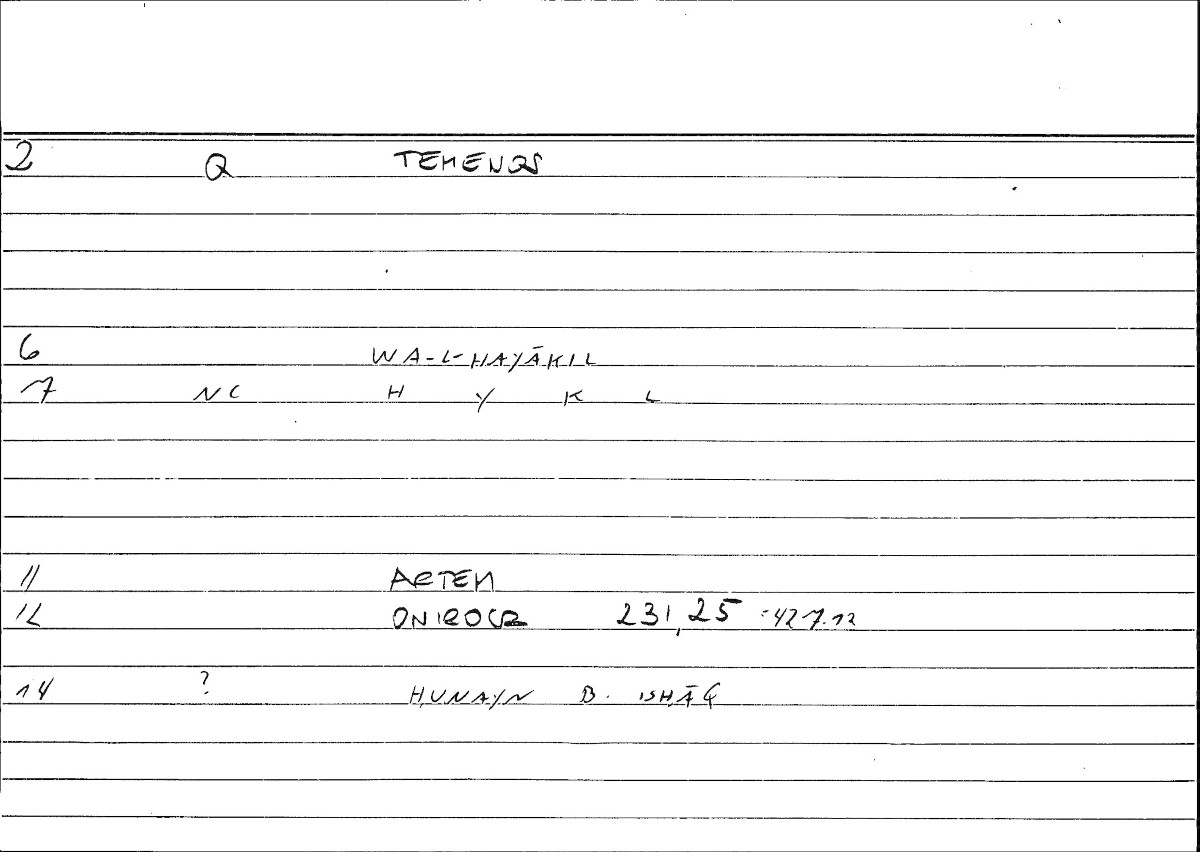 2 Q TEMENOS
6 WA-L-HAYĀKIL
7 NC H Y K L
11 ARTEM
12 ONIROCR 231,25 =427.12
14 ? ḤUNAYN B. ISḤĀQ